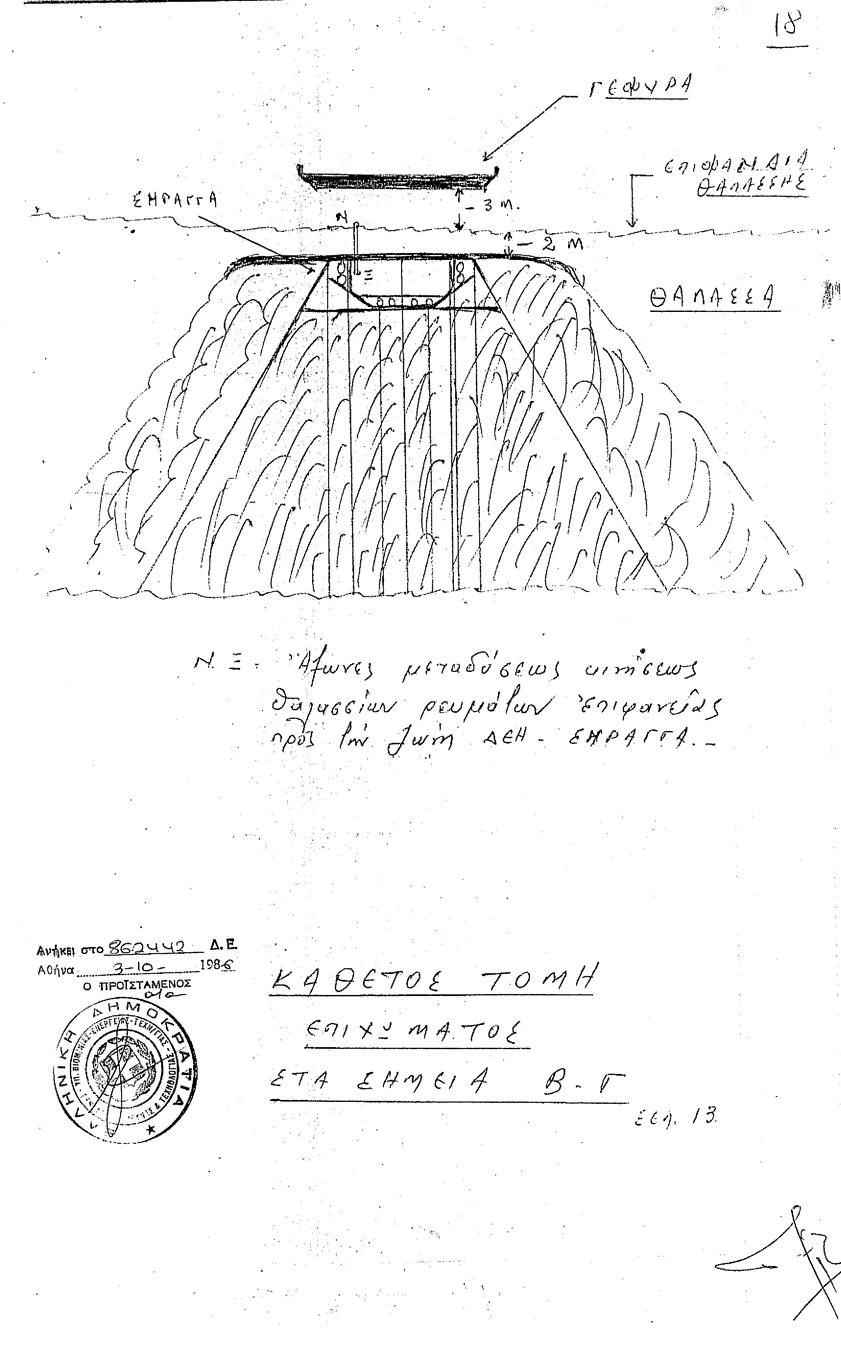 18
ΓΕΦΥΡΑ
ΕΠΙΦΑΝΕΙΑ
ΘΑΛΑΣΣΗΣ
ΣΗΡΑΓΓΑ
3 Μ.
Ν
2 Μ
Ξ
ΘΑΛΑΣΣΑ
Ν Ξ = Ἄξωνες μεταδόσεως κινήσεως
θαλασσίων ρευμάτων ἐπιφανείας
πρός τήν ζώνη ΔΕΗ - ΣΗΡΑΓΓΑ.-
Ανήκει στο 862442 Δ.Ε.
Αθήνα 3-10- 1986
Ο ΠΡΟΪΣΤΑΜΕΝΟΣ
ΕΛΛΗΝΙΚΗ ΔΗΜΟΚΡΑΤΙΑ
ΥΠ. ΒΙΟΜΗΧΑΝΙΑΣ-ΕΝΕΡΓΕΙΑΣ-ΤΕΧΝΟΛΟΓΙΑΣ
ΚΑΘΕΤΟΣ ΤΟΜΗ
ΕΠΙΧΩΜΑΤΟΣ
ΣΤΑ ΣΗΜΕΙΑ Β-Γ
ΣΕΛ. 13